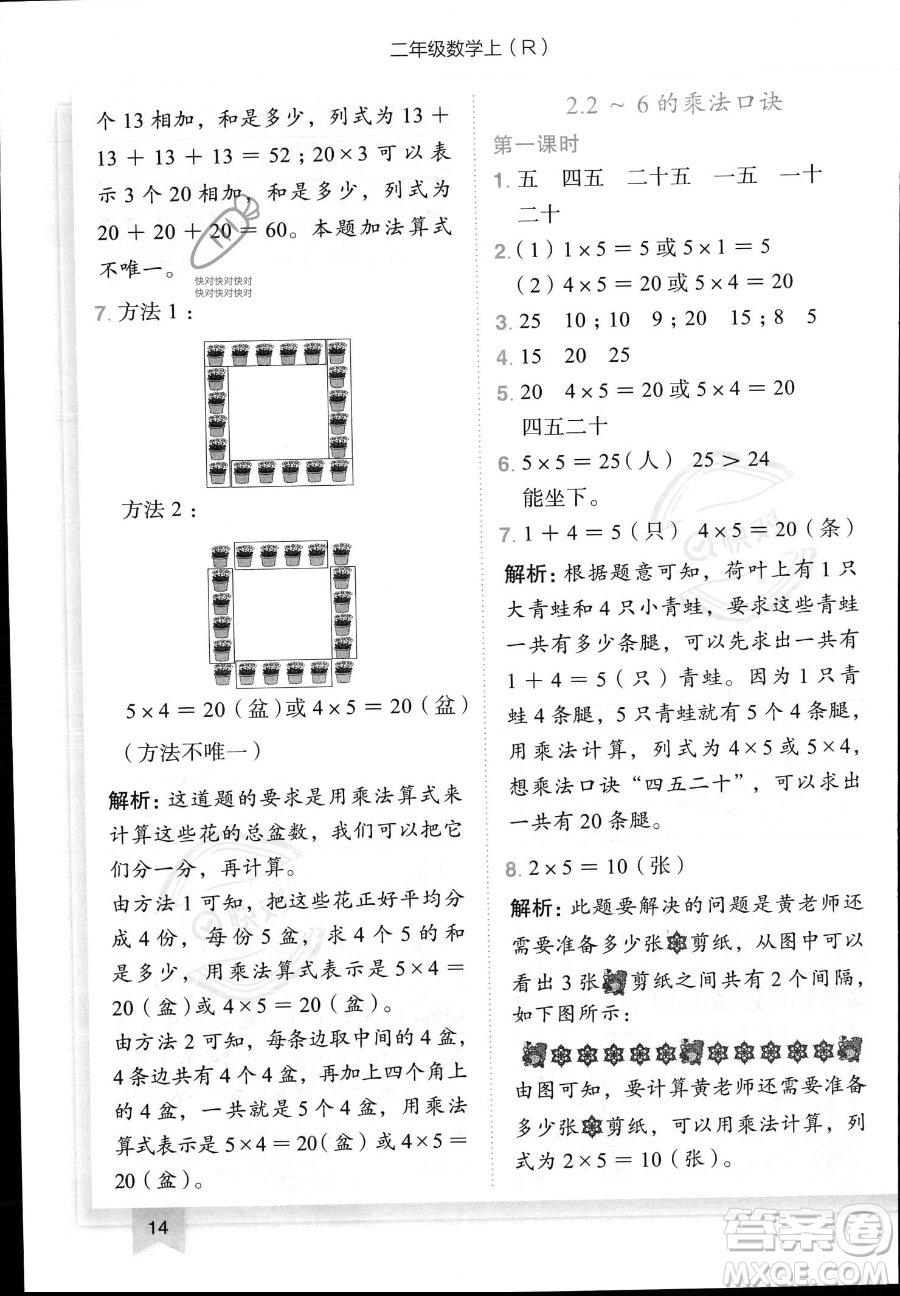 二年级数学上（R）
个 13 相加，和是多少，列式为 13 +
13 + 13 + 13 = 52；20×3 可以表
示 3 个 20 相加，和是多少，列式为
20 + 20 + 20 = 60。本题加法算式
不唯一。
快对快对快对
快对快对快对
7. 方法 1：
方法 2：
5×4 = 20（盆）或 4×5 = 20（盆）
（方法不唯一）
解析：这道题的要求是用乘法算式来
计算这些花的总盆数，我们可以把它
们分一分，再计算。
由方法 1 可知，把这些花正好平均分
成 4 份，每份都是 5 盆，求 4 个 5 的和
是多少，用乘法算式表示是 5×4 =
20（盆）或 4×5 = 20（盆）。
由方法 2 可知，每条边取中间的 4 盆，
4 条边共有 4 个 4 盆，再加上四个角上
的 4 盆，一共就是 5 个 4 盆，用乘法
算式表示是 5×4 = 20（盆）或 4×5 =
20（盆）。
14
2.2 ~ 6 的乘法口诀
第一课时
1. 五 四五 二十五 一五 一十
二十
2.（1）1×5 = 5 或 5×1 = 5
（2）4×5 = 20 或 5×4 = 20
3. 25 10；10 9；20 15；8 5
4. 15 20 25
5. 20 4×5 = 20 或 5×4 = 20
四五二十
6. 5×5 = 25（人） 25 > 24
能坐下。
7. 1 + 4 = 5（只） 4×5 = 20（条）
解析：根据题意可知，荷叶上有 1 只
大青蛙和 4 只小青蛙，要求这些青蛙
一共有多少条腿，可以先求出一共有
1 + 4 = 5（只）青蛙。因为 1 只青
蛙 4 条腿，5 只青蛙就有 5 个 4 条腿，
用乘法计算，列式为 4×5 或 5×4，
想乘法口诀“四五二十”，可以求出
一共有 20 条腿。
8. 2×5 = 10（张）
解析：此题要解决的问题是黄老师还
需要准备多少张剪纸，从图中可以
看出 3 张剪纸之间共有 2 个间隔，
如下图所示：
由图可知，要计算黄老师还需要准备
多少张剪纸，可以用乘法计算，列
式为 2×5 = 10（张）。
快对
快对
答案卷
MXQE.COM